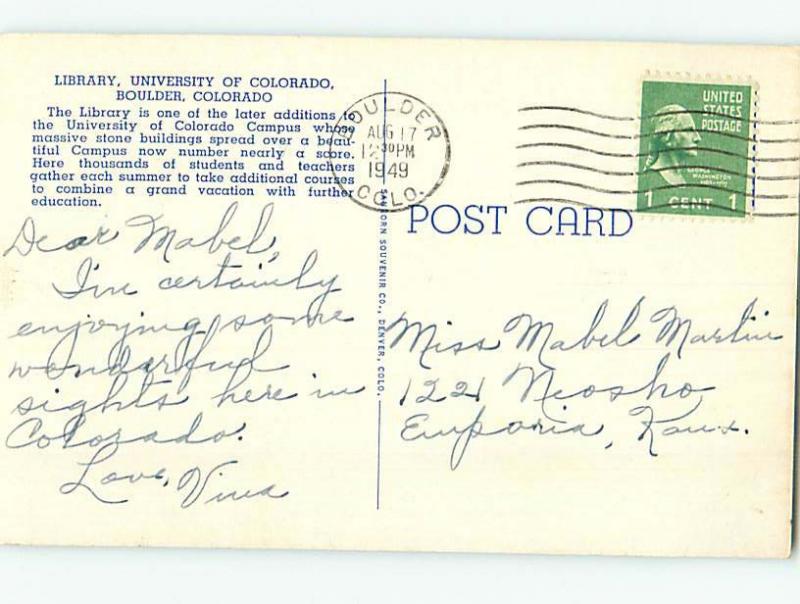 LIBRARY, UNIVERSITY OF COLORADO,
BOULDER, COLORADO
The Library is one of the later additions to
the University of Colorado Campus whose
massive stone buildings spread over a beau-
tiful Campus now number nearly a score.
Here thousands of students and teachers
gather each summer to take additional courses
to combine a grand vacation with further
education.
Dear Mabel,
I'm certainly
enjoying some
wonderful
sights here in
Colorado.
Love, Vina
BOULDER
AUG 17
12 30 PM
1949
COLO.
UNITED
STATES
POSTAGE
GEORGE
WASHINGTON
1 CENT 1
POST CARD
SANBORN SOUVENIR CO., DENVER, COLO.
Miss Mabel Martin
1221 Neosho
Emporia, Kans.